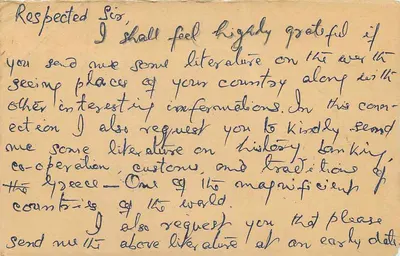 Respected Sir,
I shall feel highly grateful if
you send me some literature on the worth
seeing places of your country along with
other interesting informations. In this conn-
ection I also request you to kindly send
me some literature on history, banking,
co-operation, customs, and traditions of
the Greece — One of the magnificient
countries of the world.
I also request you that please
send me the above literature at an early date.